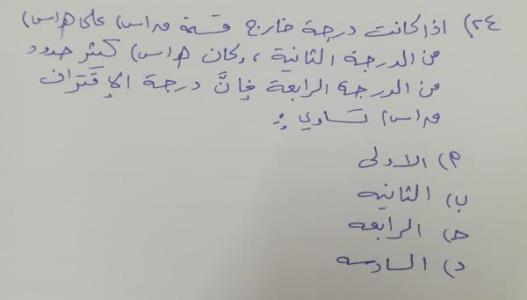 ٢٤) اذا كانت درجة خارج قسمة ق(س) على هـ(س)
من الدرجة الثانية ، وكان هـ(س) كثير حدود
من الدرجة الرابعة فإنَّ درجة الإقتران
ق(س) تساوي :
أ) الاولى
ب) الثانيه
ج) الرابعه
د) السادسه